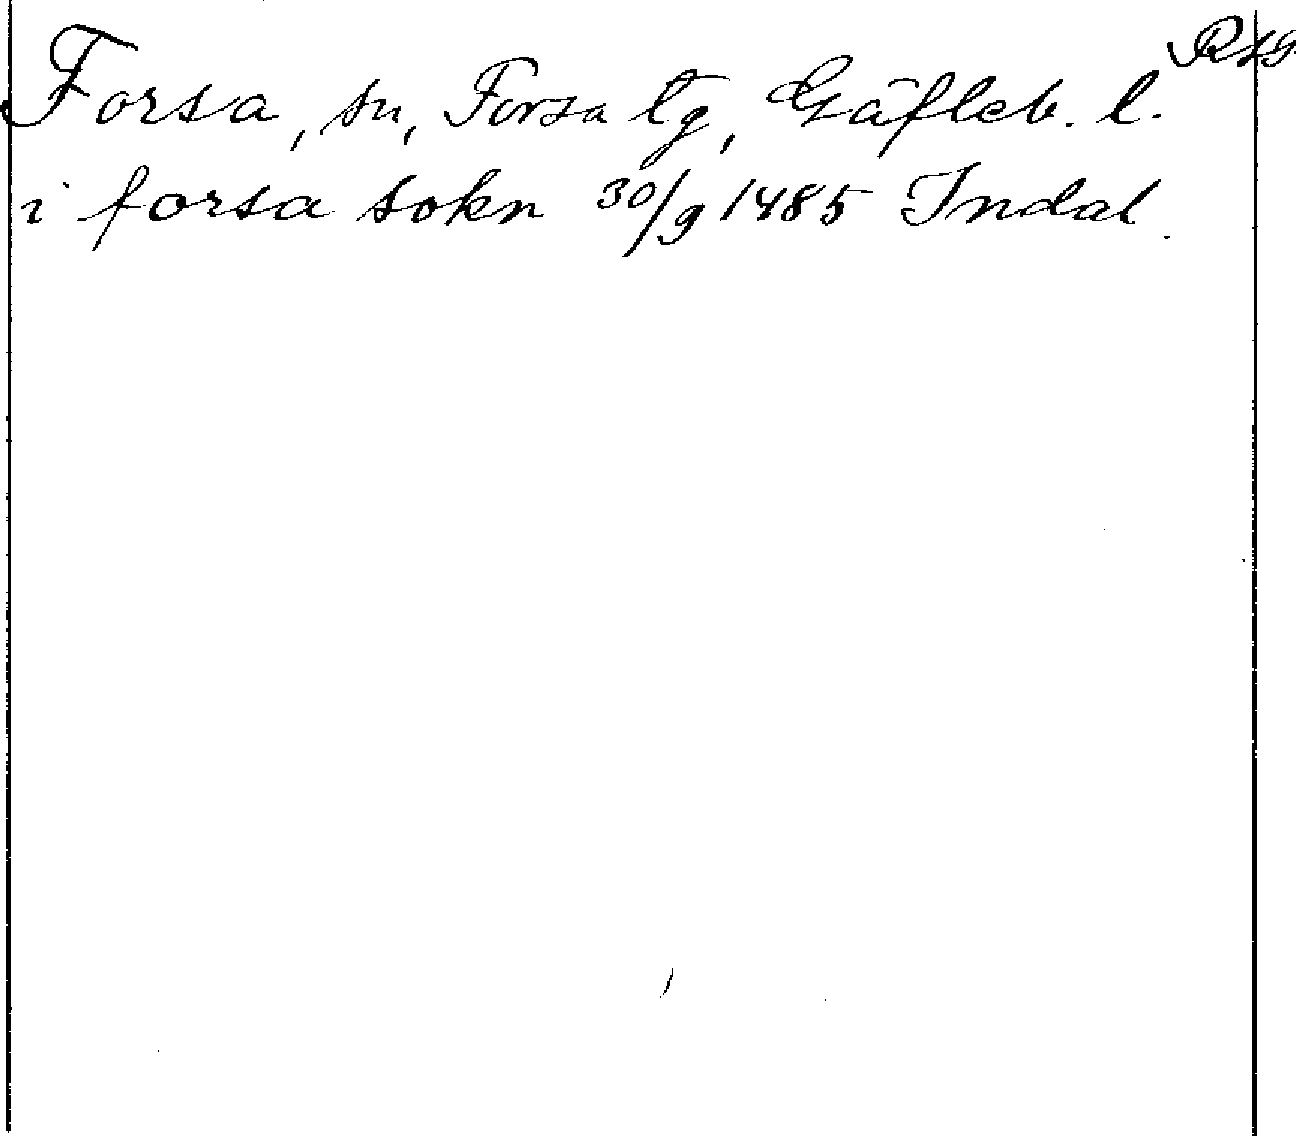 Forsa, sn, Forsa tg, Gäfleb. l.
i forsa sokn 30/9 1485 Indal.